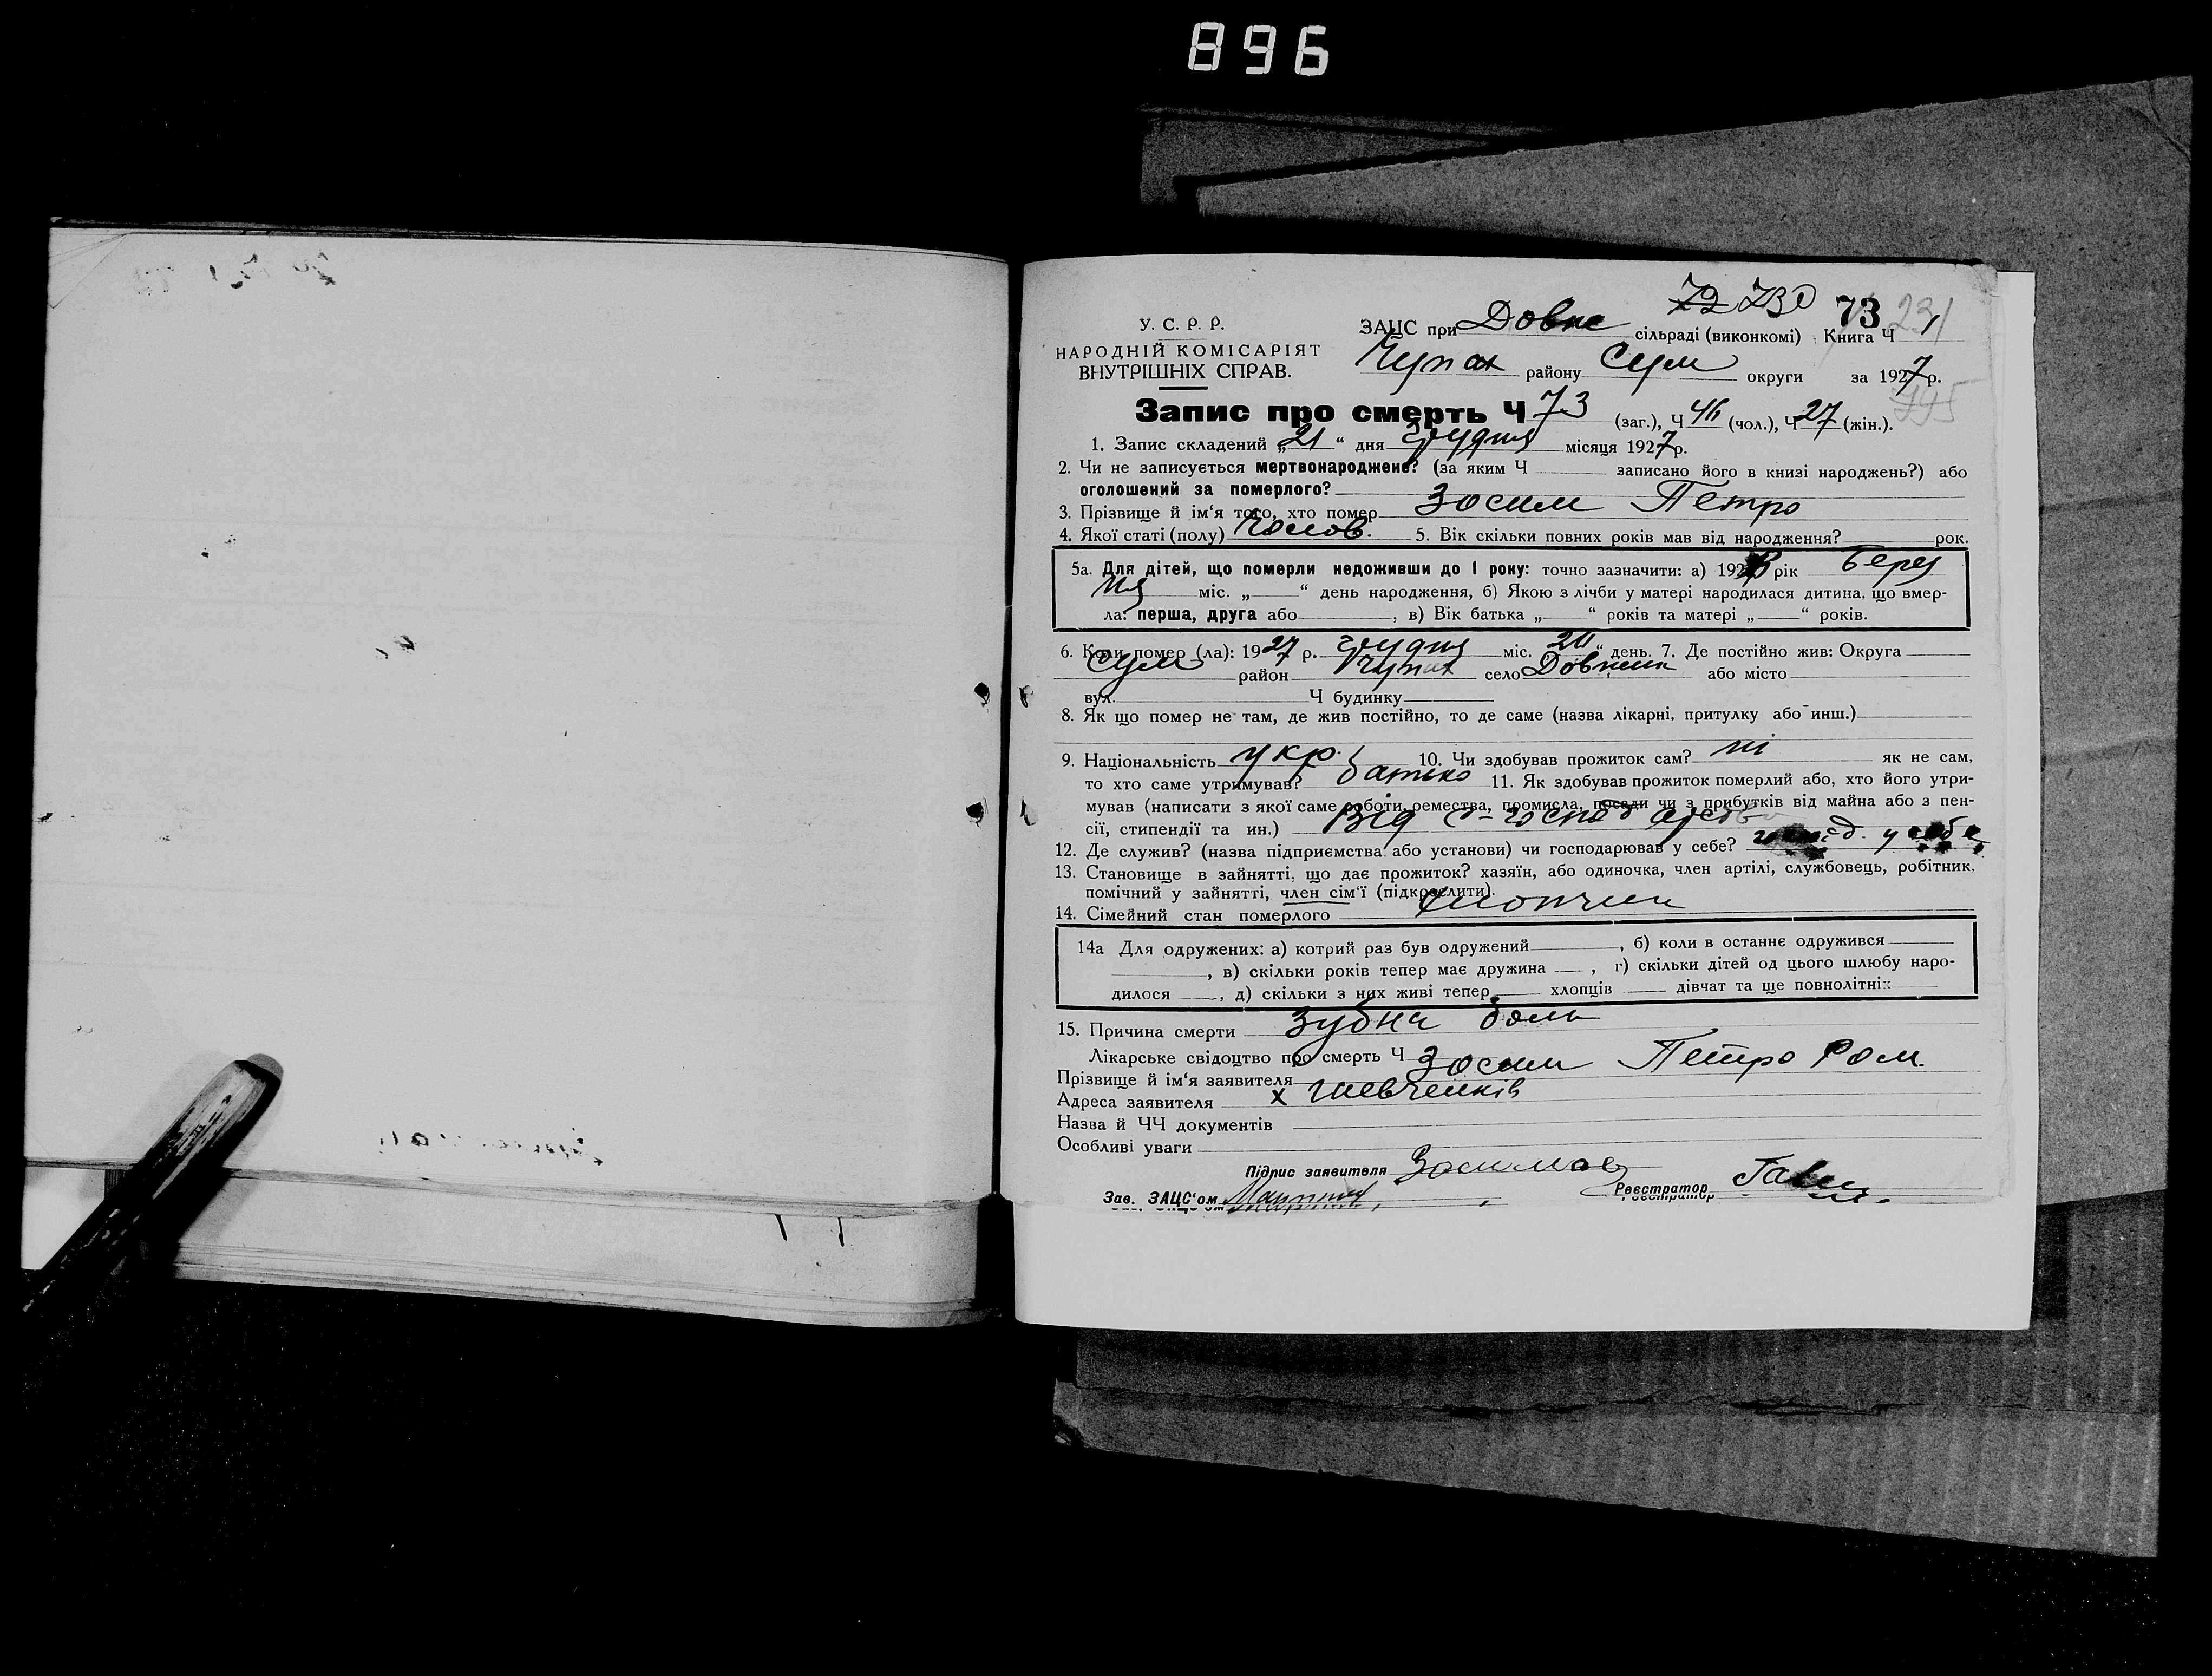 896
72 730 73 231
У. С. Р. Р.
ЗАЦС при Довне сільраді (виконкомі) Книга Ч 1
НАРОДНІЙ КОМІСАРІЯТ
ВНУТРІШНІХ СПРАВ.
Чупах району Сум округи за 1927 р.
Запис про смерть Ч 73 (заг.), Ч 46 (чол.), Ч 27 (жін.). 195
1. Запис складений „21“ дня грудня місяця 1927 р.
2. Чи не записується мертвонароджене? (за яким Ч записано його в книзі народжень?) або
оголошений за померлого?
3. Прізвище й ім‘я того, хто помер Зосим Петро
4. Якої статі (полу) Чолов. 5. Вік скільки повних років мав від народження? рок.
5а. Для дітей, що померли недоживши до 1 року: точно зазначити: а) 192 рік Берез
ня міс. „ “ день народження, б) Якою з лічби у матері народилася дитина, що вмер-
ла: перша, друга або , в) Вік батька „ “ років та матері „ “ років.
6. Коли помер (ла): 1927 р. грудня міс. 20 “ день. 7. Де постійно жив: Округа
Сум район Чупах село Довжик або місто
вул. Ч будинку
8. Як що помер не там, де жив постійно, то де саме (назва лікарні, притулку або инш.)
9. Національність укр. 10. Чи здобував прожиток сам? ні як не сам,
то хто саме утримував? батько 11. Як здобував прожиток померлий або, хто його утри-
мував (написати з якої саме роботи, ремества, промисла, посади чи з прибутків від майна або з пен-
сії, стипендії та ин.) Від с-господарства
12. Де служив? (назва підприємства або установи) чи господарював у себе? господ. у себе
13. Становище в зайнятті, що дає прожиток? хазяїн, або одиночка, член артілі, службовець, робітник,
помічний у зайнятті, член сім‘ї (підкреслити).
14. Сімейний стан померлого хлопчик
14а Для одружених: а) котрий раз був одружений , б) коли в останнє одружився
, в) скільки років тепер має дружина , г) скільки дітей од цього шлюбу наро-
дилося , д) скільки з них живі тепер хлопців дівчат та ще повнолітніх
15. Причина смерти Зубна боль
Лікарське свідоцтво про смерть Ч
Прізвище й ім‘я заявителя Зосим Петро Ром.
Адреса заявителя х Шевченків
Назва й ЧЧ документів
Особливі уваги
Підпис заявителя
Зав. ЗАЦС‘ом Реєстратор